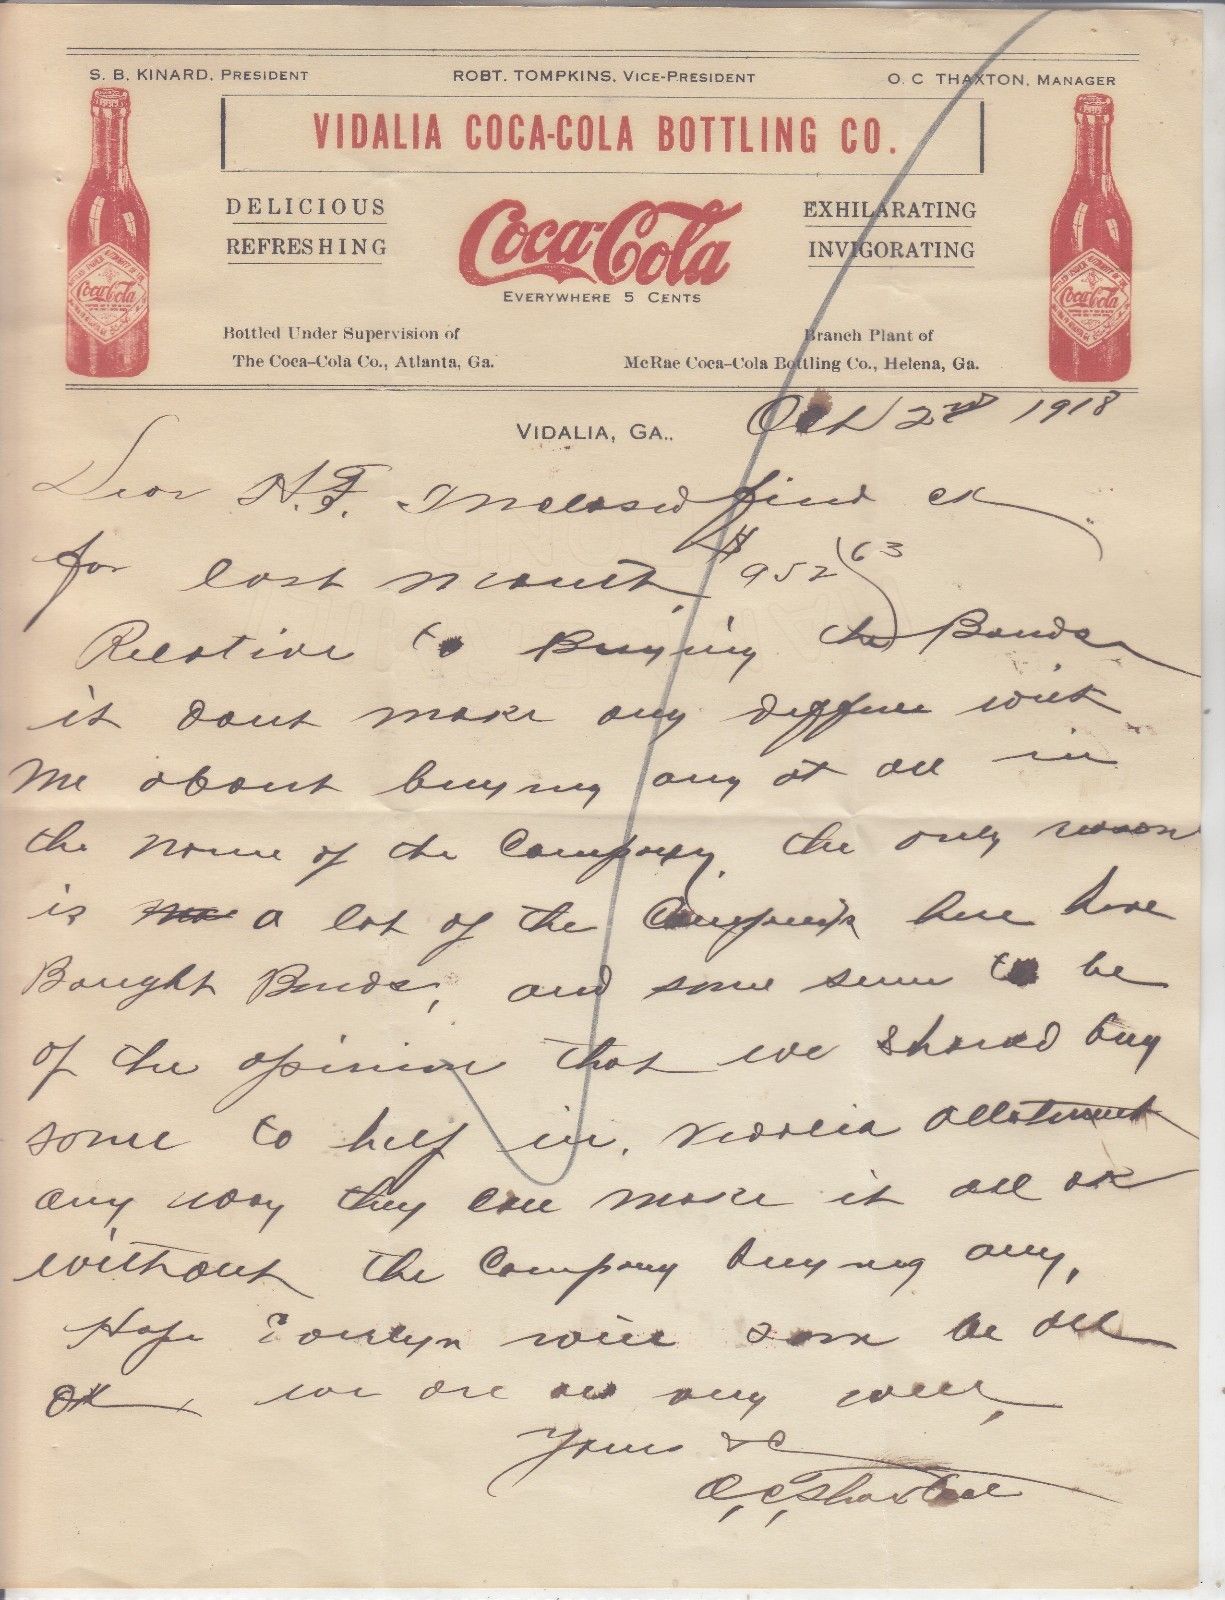 S. B. KINARD, PRESIDENT ROBT. TOMPKINS, VICE-PRESIDENT O. C THAXTON, MANAGER
VIDALIA COCA-COLA BOTTLING CO.
DELICIOUS
REFRESHING
Coca-Cola
EVERYWHERE 5 CENTS
EXHILARATING
INVIGORATING
Bottled Under Supervision of
The Coca-Cola Co., Atlanta, Ga.
Branch Plant of
McRae Coca-Cola Bottling Co., Helena, Ga.
Coca-Cola
Coca-Cola
VIDALIA, GA., Oct 2nd 1918
Dear H.F. Inclosed find ck
for last month, $952 63
Relative to Buying the Bonds
it dont make any with
me about buying any at all in
the name of the Company, the only reason
is a lot of the here have
Bought Bonds, and some seem to be
of the opinion that we should buy
some to help in, Vidalia allotment
any way they can make it all ok
without the Company buying any,
Hope Evelyn will soon be all
ok, we are all very well,
Yours &C
O,C,Thaxton